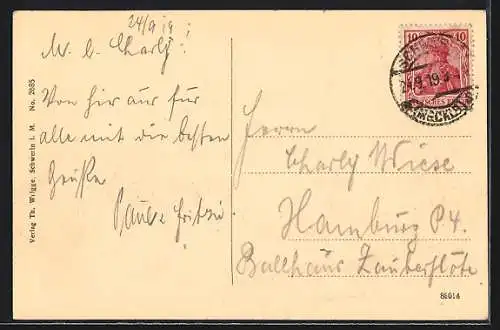 24/9 19
M. l. Charly!
Von hir aus für
alle mit die besten
Grüße
Paul & Fritzi
Verlag Th. Wulgge, Schwerin i. M. No. 2885
10 10
SCHWERIN
9.19.
(MECKLB)
Herrn
Charly Wiese
Hamburg P4.
Ballhaus Zauberflöte
86014